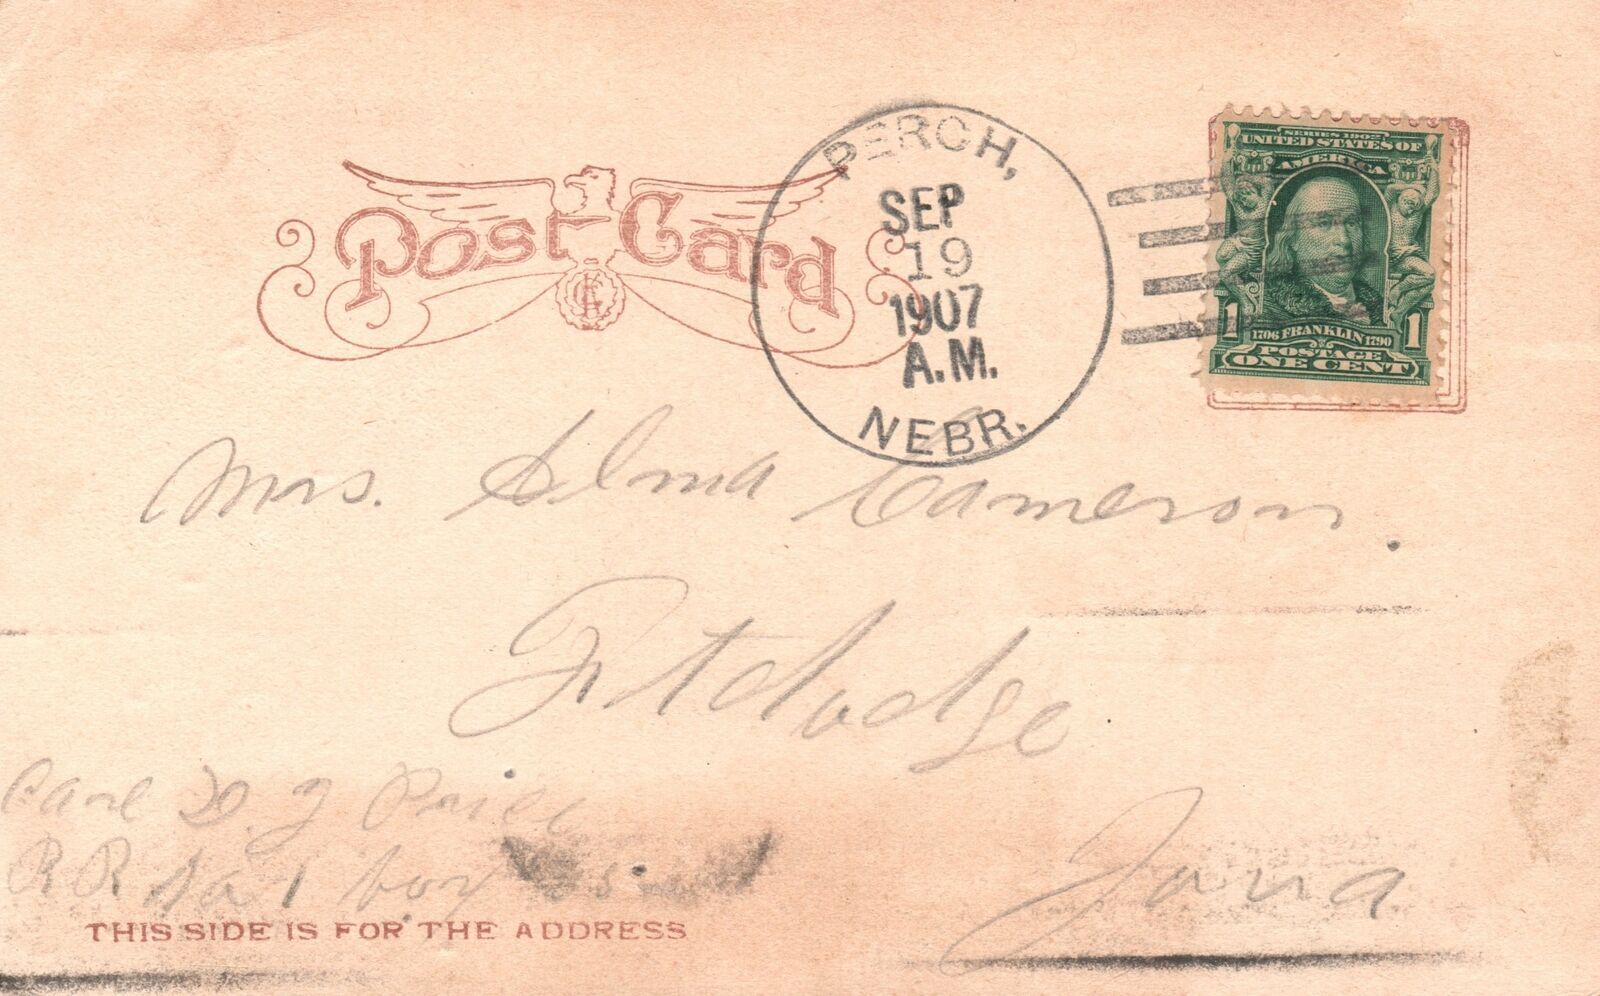 Post Card
PERCH,
SEP
19
1907
A.M.
NEBR.
SERIES 1902
UNITED STATES OF
AMERICA
1 1706 FRANKLIN 1790 1
POSTAGE
ONE CENT
Mrs. Alma Cameron.
Ft dodge
Iowa
Care D. J Price
R R No 1 box
THIS SIDE IS FOR THE ADDRESS